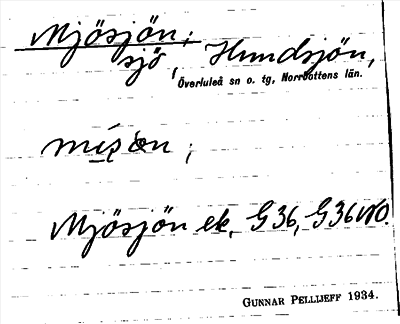 Mjösjön;
sjö, Hundsjön,
Överluleå sn o. tg, Norrbottens län.
;
Mjösjön ek, G36, G36 NO.
GUNNAR PELLIJEFF 1934.